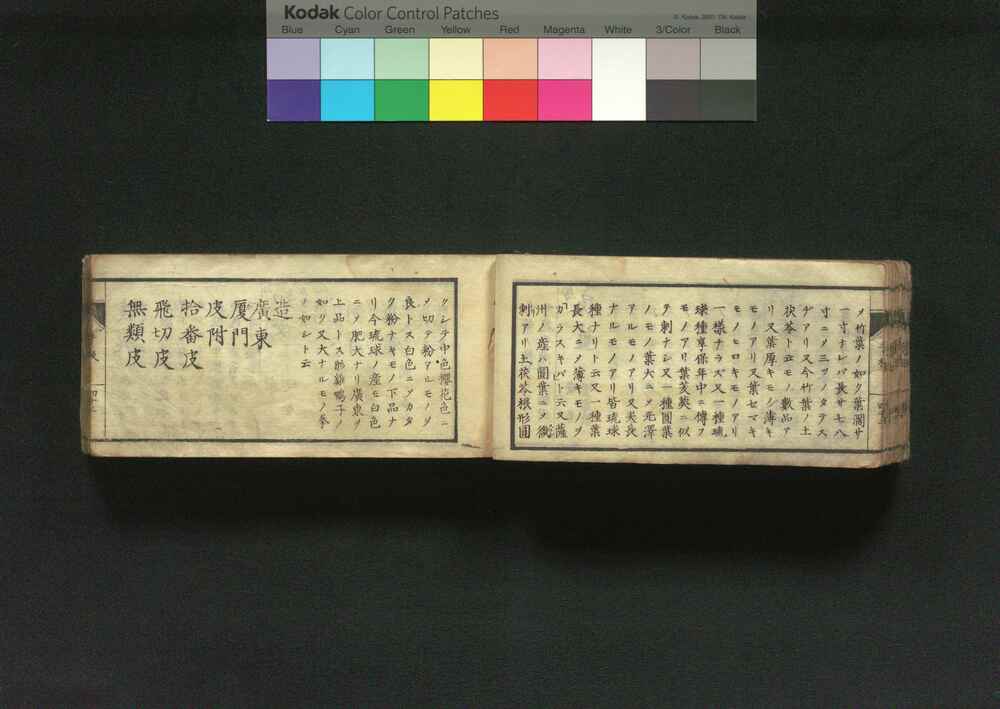 Kodak Color Control Patches
Blue Cyan Green Yellow Red Magenta White 3/Color Black
メ竹葉ノ如ク葉濶サ
一寸ナレバ長サ七八
寸ニノ三ツノタテス
ヂアリ又今竹葉ノ土
茯苓ト云モノ數品ア
リ又葉厚キモノ薄キ
モノアリ又葉セマキ
モノヒロキモノアリ
一様ナラズ又一種琉
球種享保年中ニ傳フ
モノアリ葉菝葜ニ似
テ刺ナシ又一種圓葉
ノモノ葉大ニノ光澤
アルモノアリ又尖長
ナルモノアリ皆琉球
種ナリト云又一種葉
長大ニノ薄キモノヲ
カラスキバト云又薩
州ノ産ハ圓葉ニノ微
刺アリ土茯苓根形圓
クシテ中色櫻花色ニ
ノ切テ粉アルモノヲ
良トス白色ニノカタ
ク粉ナキモノ下品ナ
リ今琉球ノ産モ白色
ニノ肥大ナリ廣東ノ
上品トス形鷄鴨子ノ
如ク又大ナルモノ拳
ノ如シト云
造
廣東
厦門
皮附
拾番皮
飛切皮
無類皮